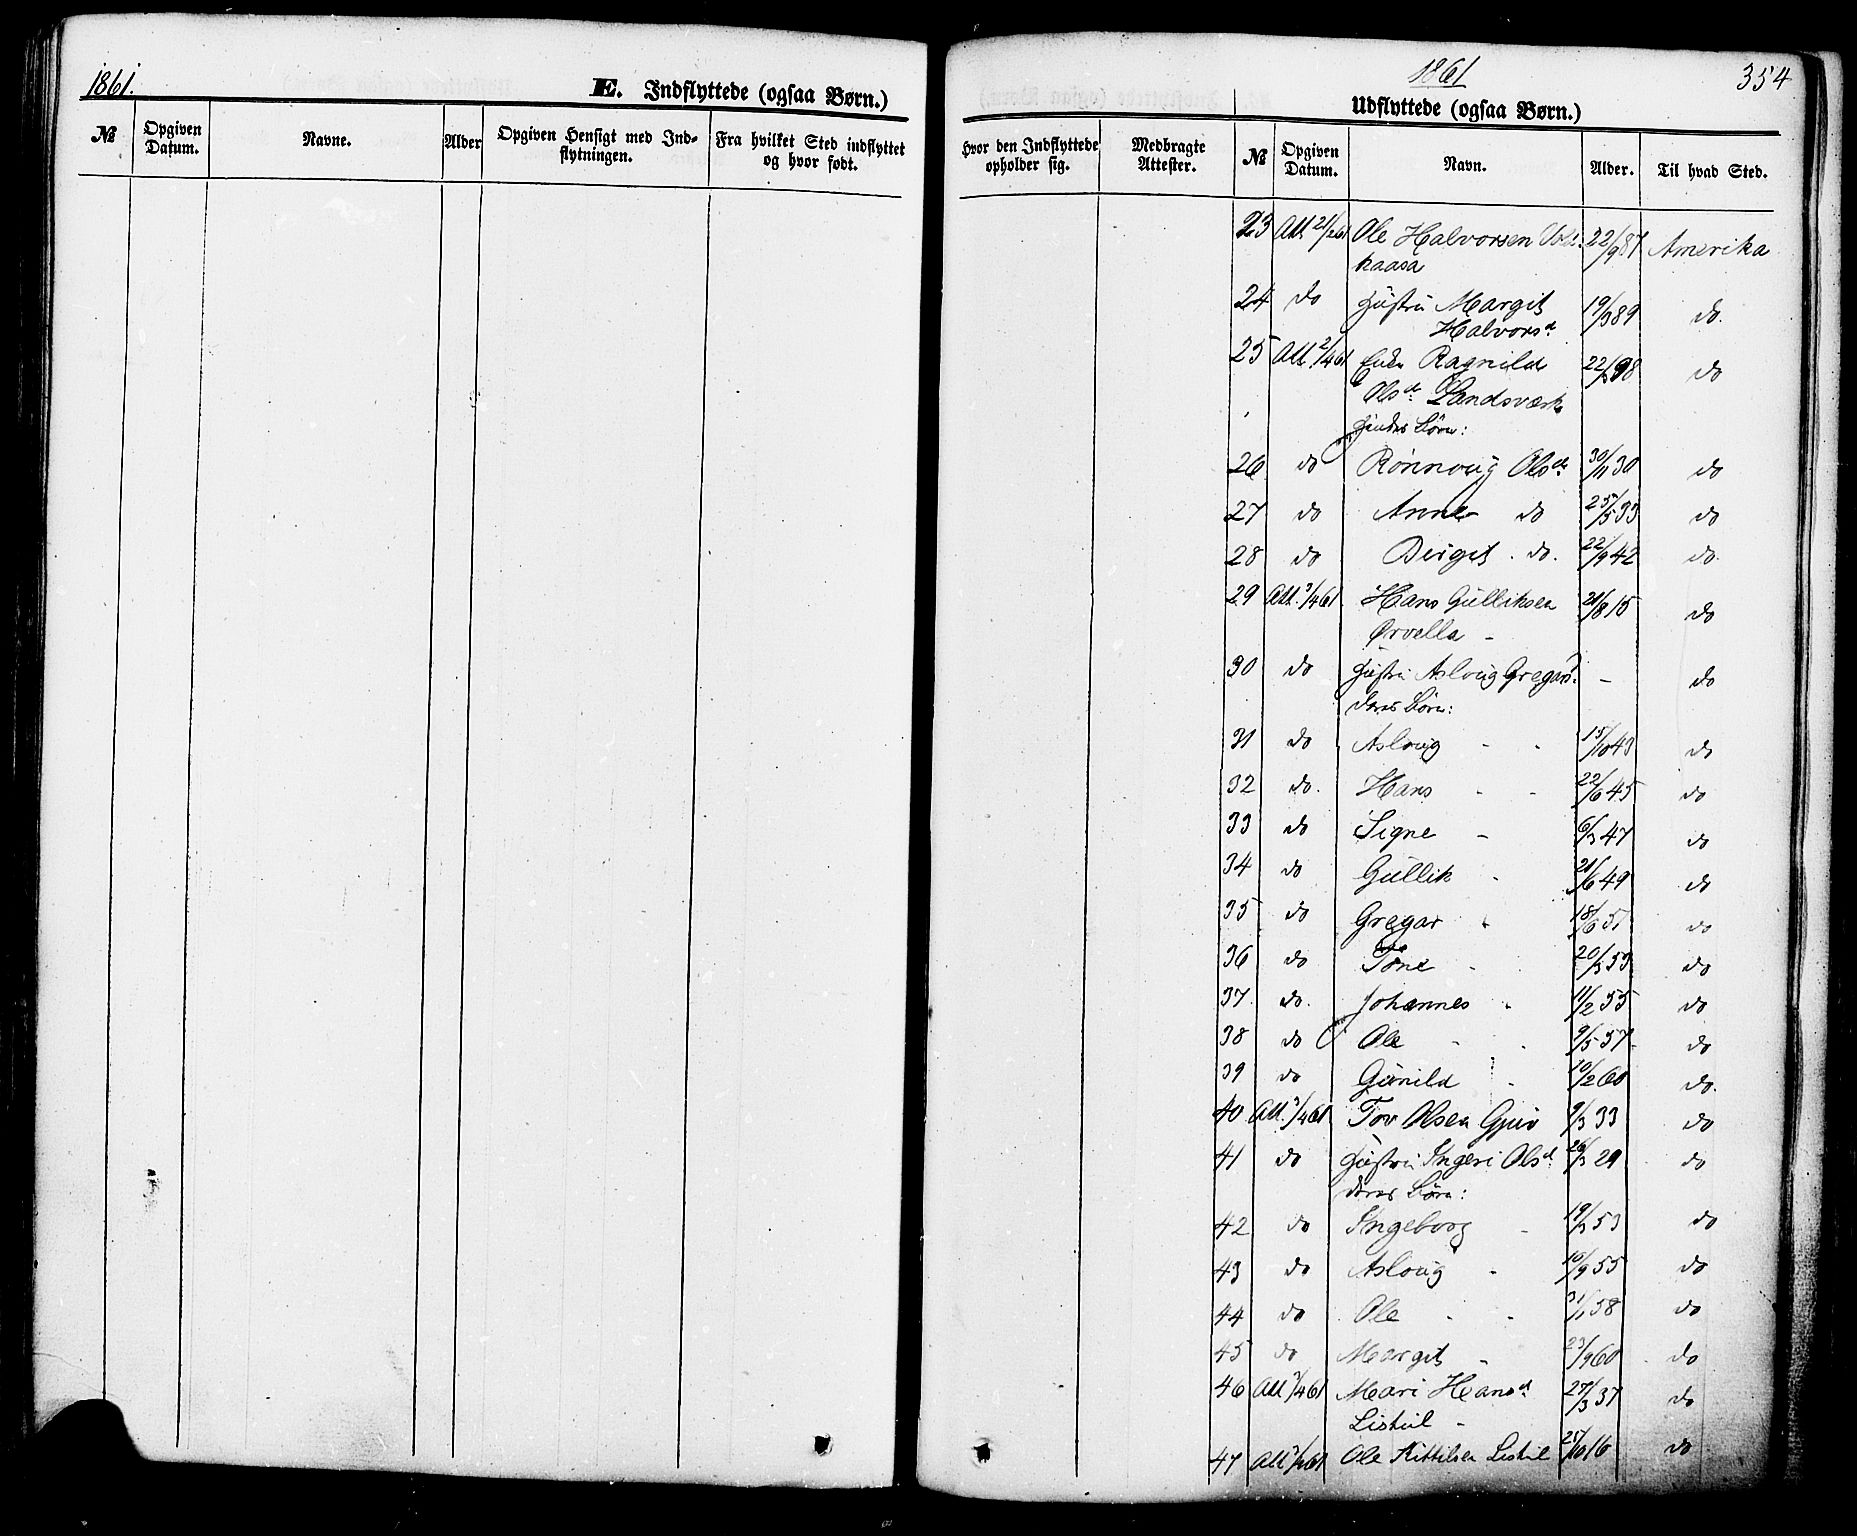 1861.
E. Indflyttede (ogsaa Børn.)
№ Opgiven Datum. Navne. Alder Opgiven Hensigt med Ind-flytningen. Fra hvilket Sted indflyttet og hvor født.
1861 354
Udflyttede (ogsaa Børn.)
Hvor den Indflyttede opholder sig. Medbragte Attester. № Opgiven Datum. Navn. Alder. Til hvad Sted.
23 Att. 21/2 61 Ole Halvorsen 22/9 87 Amerika
kaasa
24 do Hustru Margit 19/3 89 do.
Halvorsd.
25 Att. 2/4 61 Enke Ragnild 22/2 98 do
Olsd. Landsværk
Hendes Børn:
26 do Rønnoug Olsd. 30/11 30 do
27 do Anne do 25/5 33 do
28 do Birgit do. 22/9 42 do.
29 Att. 3/4 61 Hans Gulliksen 21/8 15 do
Ørvella -
30 do Hustru Asloug Gregarsd. - do
deres Børn:
31 do Asloug - - 15/10 43 do
32 do. Hans - - 22/6 45 do
33 do Signe - 6/3 47 do
34 do Gullik - 21/6 49 do
35 do Gregar - 18/6 51 do
36 do Tone - 20/3 53 do
37. do. Johannes - 11/2 55 do
38 do Ole - - 9/5 57 do
39 do Gunild - 10/2 60 do.
40 Att. 3/4 61 Tov Olsen Gjuv 9/3 33 do
41 do Hustru Ingeri Olsd. 26/3 29 do
deres Børn:
42 do Ingeborg - 19/3 53 do
43 do Asloug - 10/9 55 do
44 do Ole - - 31/1 58 do
45 do Margit - 23/9 60 do
46 Att. 3/4 61 Mari Hansd. 27/3 37 do
Listul -
47 Att. 3/4 61 Ole Kittilsen Listul 25/10 16 do